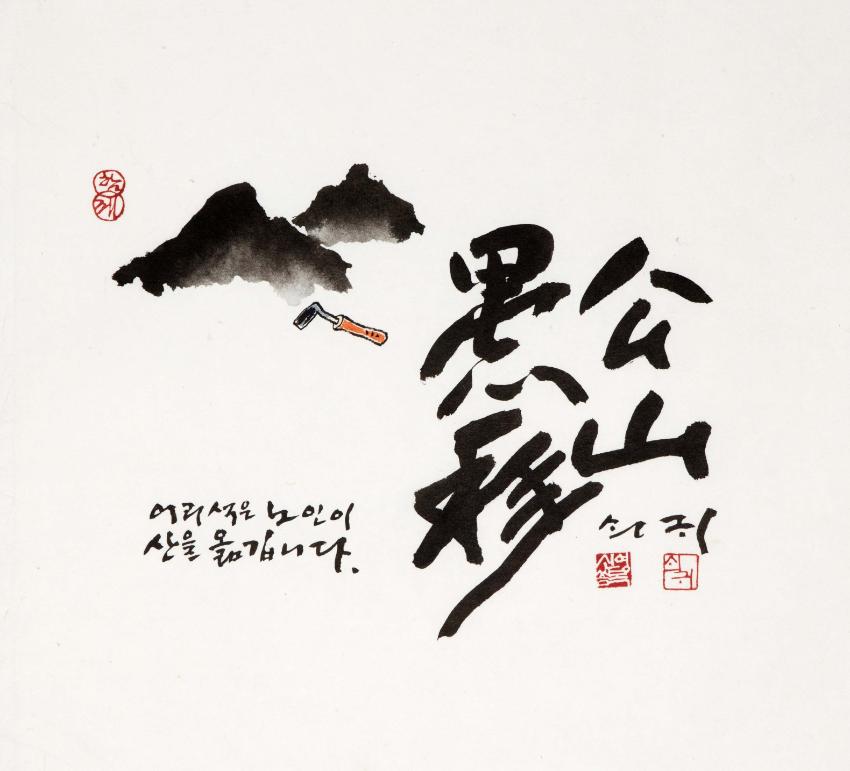 愚公
移山
어리석은 노인이
산을 옮깁니다.
쇠귀